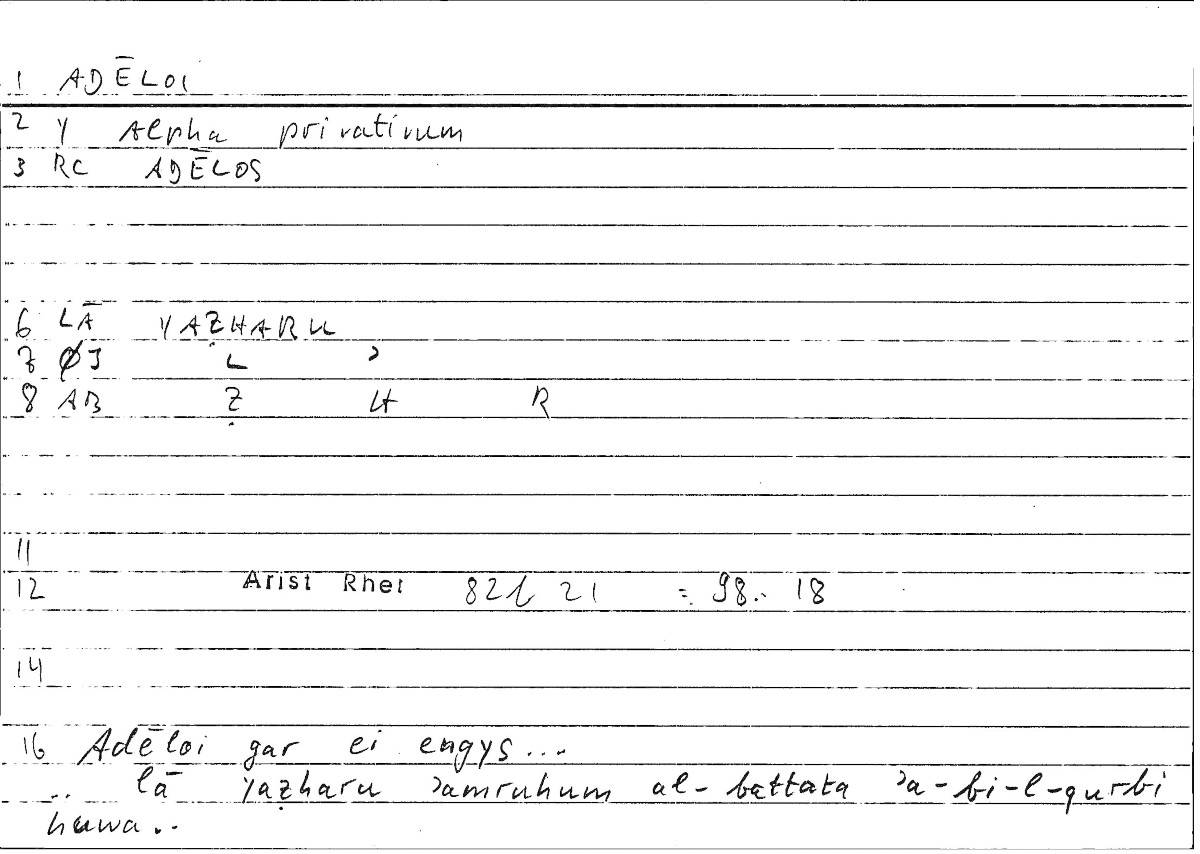 1 ADĒLOI
2 Y Alpha privativum
3 RC ADĒLOS
6 LĀ YAẒHARU
7 ØJ L ʾ
8 AB Ẓ H R
11
12 Arist Rhet 82b 21 = 98.. 18
14
16 Adēloi gar ei engys...
.. lā yaẓharu ʾamruhum al-battata ʾa-bi-l-qurbi
huwa..